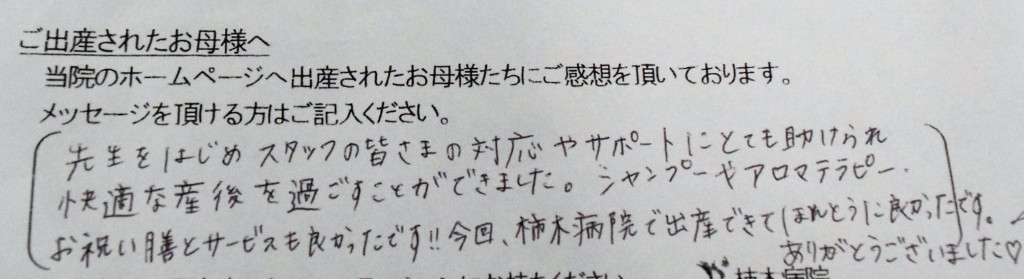 ご出産されたお母様へ
当院のホームページへ出産されたお母様たちにご感想を頂いております。
メッセージを頂ける方はご記入ください。
先生をはじめスタッフの皆さまの対応やサポートにとても助けられ
快適な産後を過ごすことができました。シャンプーやアロマテラピー、
お祝い膳とサービスも良かったです!!今回、柿木病院で出産できてほんとうに良かったです。
ありがとうございました♡
柿木病院